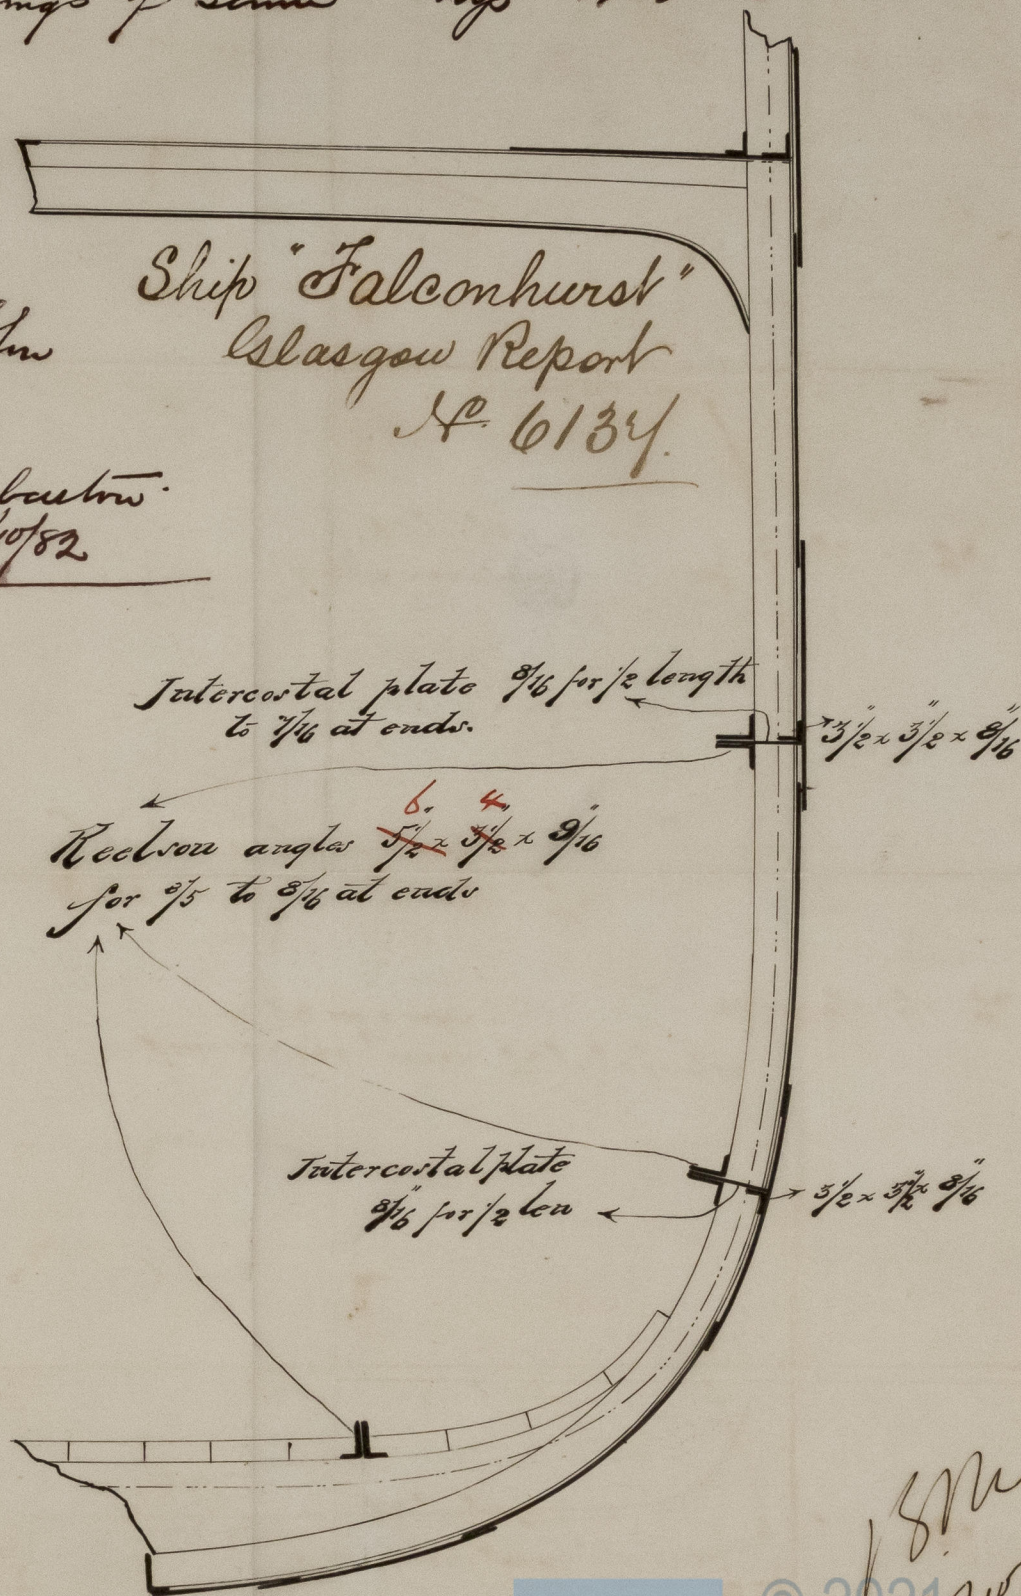 Ship "Falconhurst"
Glasgow Report
No. 6134.
10/82
Intercostal plate 8/16 for 1/2 length
to 7/16 at ends.
3 1/2" x 3 1/2" x 8/16"
6" 4"
Keelson angles 5 1/2 x 3 1/2 x 9/16"
for 3/5 to 8/16 at ends
Intercostal plate
8/16" for 1/2 len
3 1/2 x 3 1/2" x 8/16"
© 2021